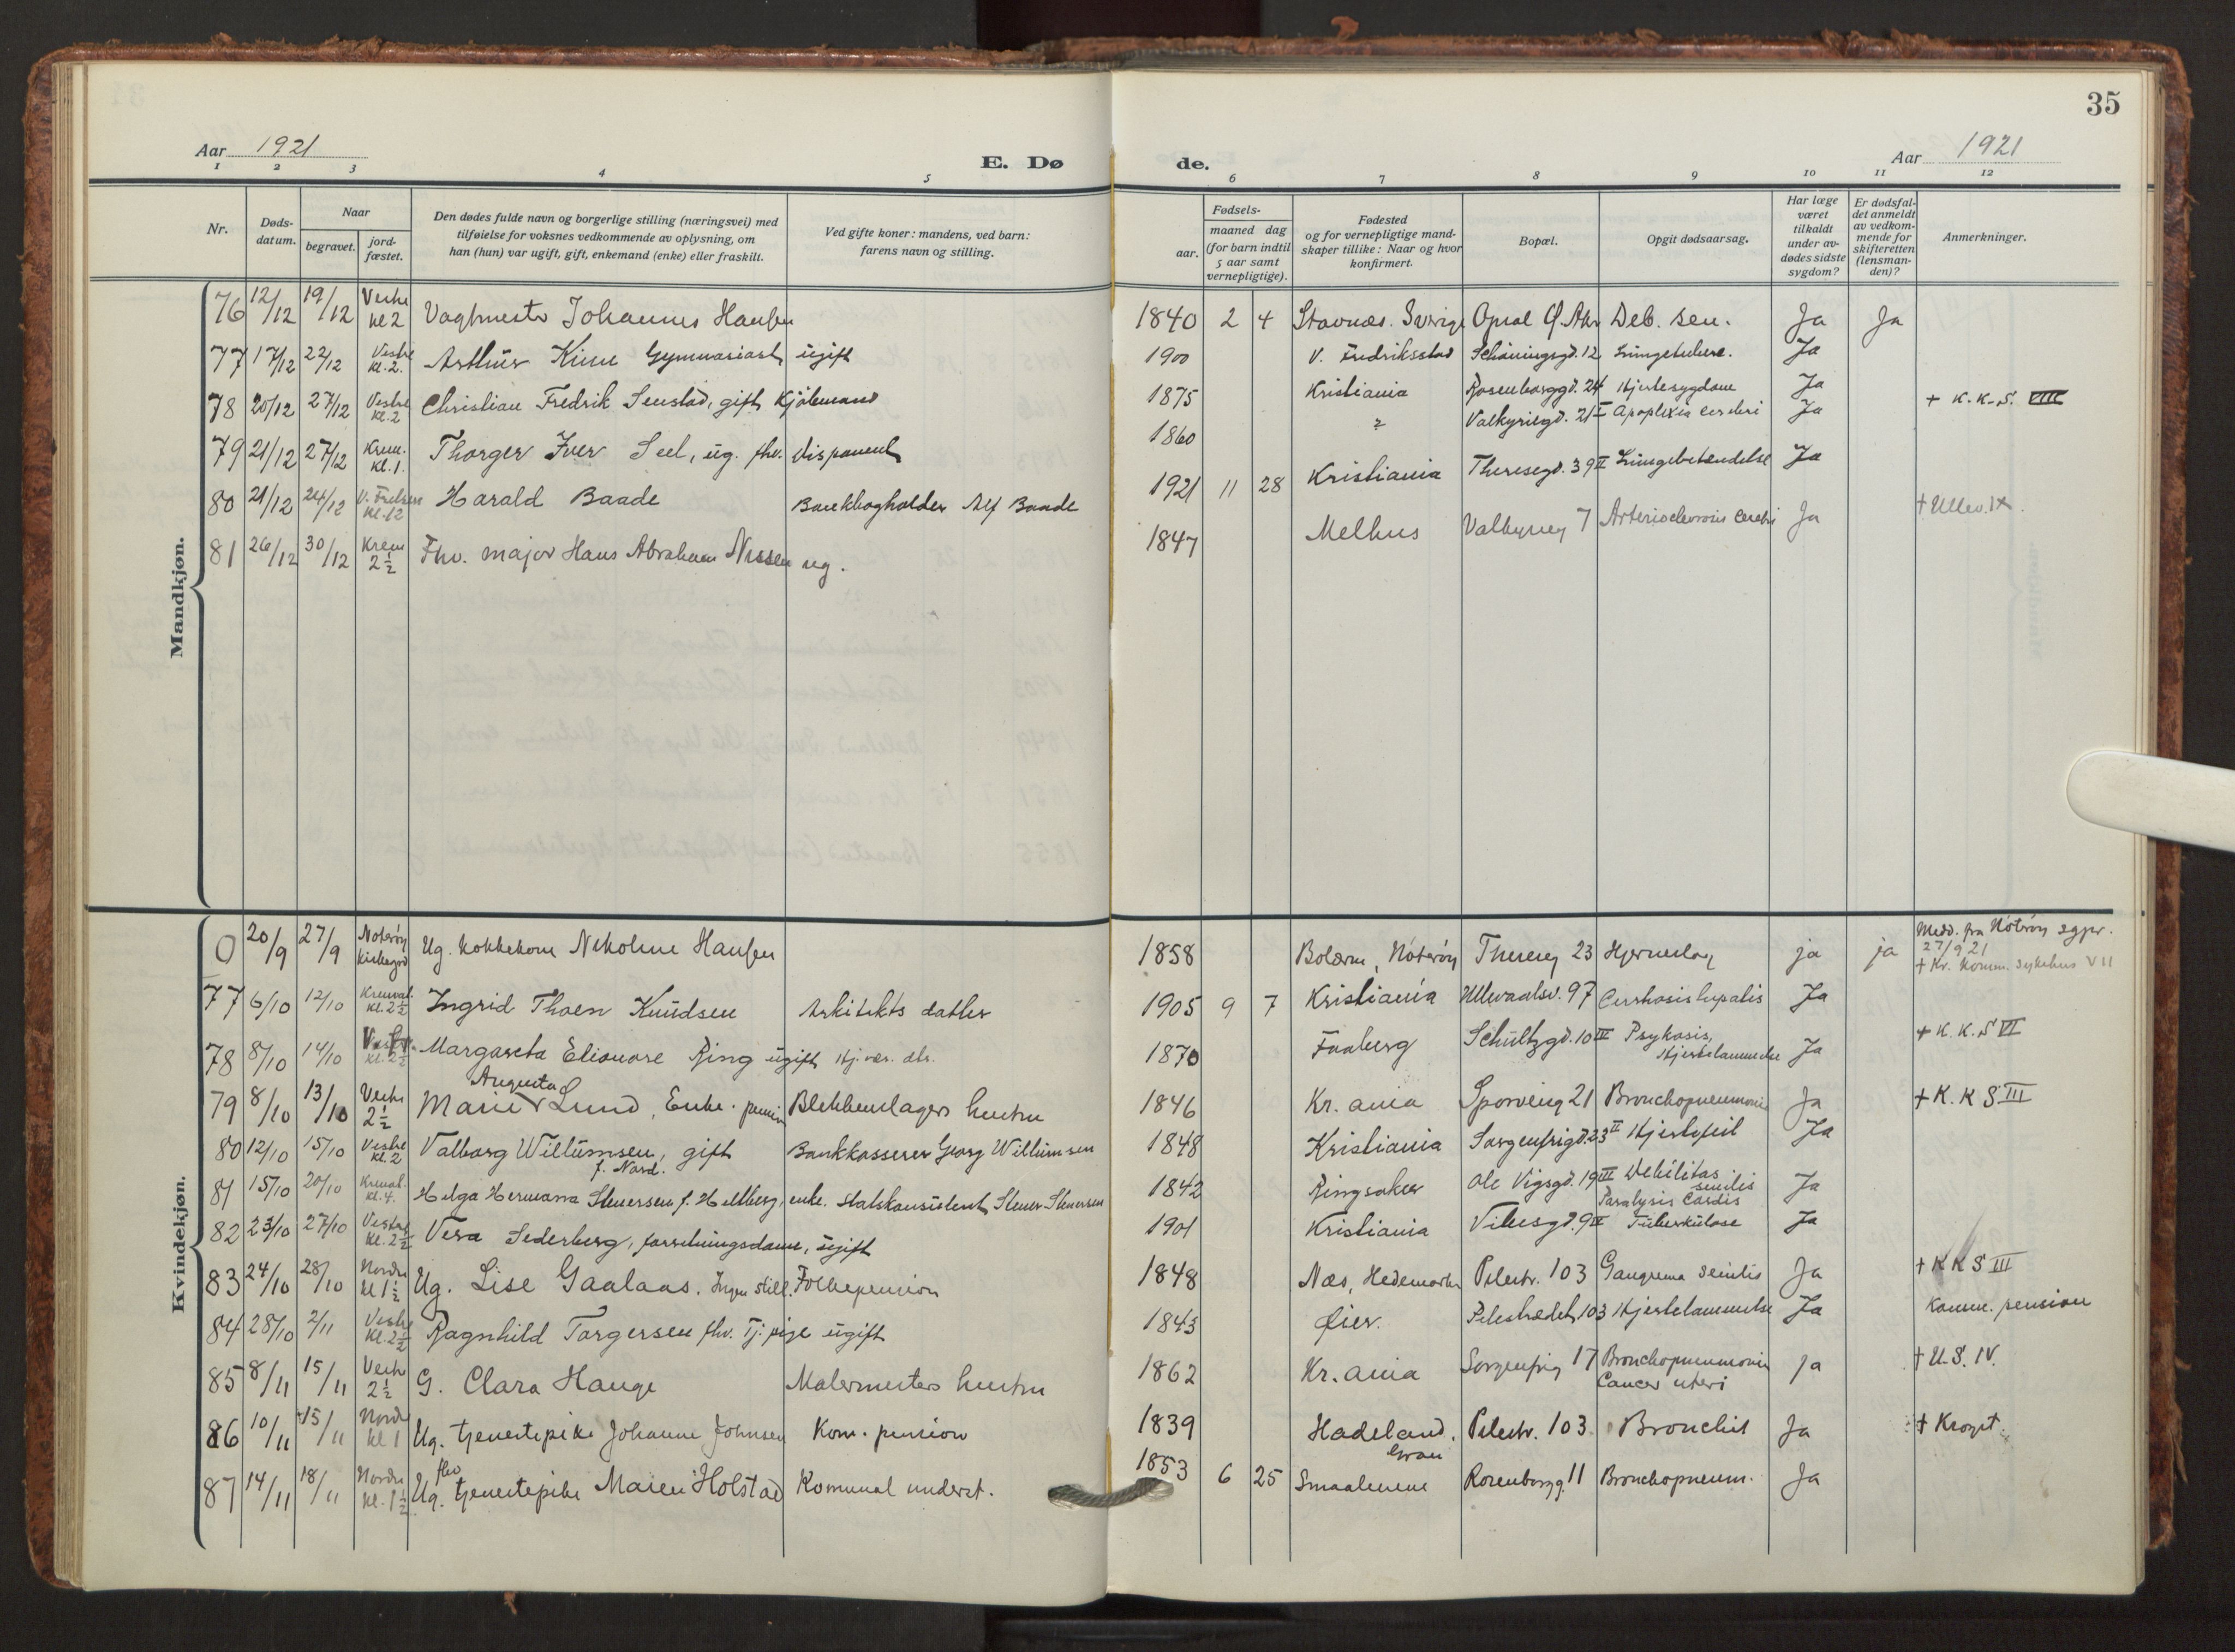 35
Aar 1921
E. Dø de.
Aar 1921
1 2 3 4 5 6 7 8 9 10 11 12
Nr.
Døds-datum.
Naar
begravet.
jord-fæstet.
Den dødes fulde navn og borgerlige stilling (næringsvei) med
tilføielse for voksnes vedkommende av oplysning, om
han (hun) var ugift, gift, enkemand (enke) eller fraskilt.
Ved gifte koner: mandens, ved barn:
farens navn og stilling.
Fødsels-
aar.
maaned dag
(for barn indtil
5 aar samt
vernepligtige).
Fødested
og for vernepligtige mand-
skaper tillike: Naar og hvor
konfirmert.
Bopæl.
Opgit dødsaarsag.
Har læge
været
tilkaldt
under av-
dødes sidste
sygdom?
Er dødsfal-
det anmeldt
av vedkom-
mende for
skifteretten
(lensman-
den)?
Anmerkninger.
Mandkjøn.
76 12/12 19/12 Vestre kl 2 Johannes Hansen 1840 2 4 Stavnæs. Sverige Opsal Ø. Aker Deb. sen. Ja Ja
77 17/12 22/12 Vestre kl. 2. Arthur Gymnasiast ugift 1900 V. Fredriksstad Schøningsgd. 12 Lungetuberc. Ja
78 20/12 27/12 Vestre kl. 2 Christian Fredrik Senstad, gift Kjøbmand 1875 Kristiania Rosenborggd. 24 Hjertesygdom Ja + K.K.S. VIII
79 21/12 27/12 Krem. kl. 1. Thorger Iver Seel, ug. fhv. disponent 1860 " Valkyriegd. 21 I Apoplexia cerebri Ja
80 21/12 24/12 V. Frelsers kl. 12 Harald Baade Bankbogholder Alf Baade 1921 11 28 Kristiania Theresegd. 39 II Lungebetændelse Ja
81 26/12 30/12 Krem 2½ Fhv. major Hans Abraham Nissen ug. 1847 Melhus Valkyrieg 7 Arteriosclerosis cerebri Ja + Ullev. IX.
Kvindekjøn.
0 20/9 27/9 Nøterøy kirkegrd Ug. kokkekone Nikoline Hansen 1858 Bolærne, Nøterøy Thereseg 23 Hjerneslag ja ja Medd. fra Nøterøy sgpr. 27/9 21
+ Kr. Komm. sykehus VII
77 6/10 12/10 Kremat. kl. 2½ Ingrid Thoen Knudsen Arkitekts datter 1905 9 7 Kristiania Ullevaalsv. 97 Cirrhosis hepatis Ja
78 8/10 14/10 kl. 2½ Margareta Elionore Ring ugift Hj.væ. dtr. 1870 Faaberg Schultzgd. 10 IV Psykosis, Hjertelammelse Ja + K.K.S VI
79 8/10 13/10 Vestre 2½ Marie Augusta Lund, Enke. Blikkenslagers hustru 1846 Kr.ania Sporveisg 21 Bronchopneumoni Ja + K.K S III
80 12/10 15/10 Vestre kl. 2 Valborg Willumsen, gift f. Nard. Bankkasserer Georg Willumsen 1848 Kristiania Sorgenfrigd. 23 II Hjertefeil Ja
81 15/10 20/10 Kremat. kl. 4. Helga Hermana Stenersen f. Heltberg, enke. Statskonsulent Stener Stenersen 1842 Ringsaker Ole Vigsgd. 19 III Debilitas senilis Paralysis Cordis Ja
82 23/10 27/10 Vestre kl. 2½ Vera Sederberg, forretningsdame, ugift 1901 Kristiania Vibesgd. 9 IV Tuberkulose Ja
83 24/10 28/10 Nordre kl 1½ Ug. Lise Gaalaas. Ingen still. Folkepension 1848 Næs, Hedemarken Pilestr. 103 Gangrena senilis Ja + K K S III
84 28/10 2/11 Vestre kl. 2½ Ragnhild Torgersen fhv. Tj. pige ugift 1843 Øier. Pilestrædet 103 Hjertelammelse Ja Komm. pension
85 8/11 15/11 Vestre 2½ G. Clara Hauge Malermesters hustru 1862 Kr.ania Sorgenfrig 17 Bronchopneumoni Cancer uteri ja + U.S. IV.
86 10/11 15/11 Nordre kl 1 Ug. tjenestepike Johanne Johnsen Kom. pension 1839 Hadeland, Gran Pilestr. 103 Bronchit Ja + Krogst.
87 14/11 18/11 Nordre kl. 1½ Ug. fhv tjenestepike Maren Holstad Komunal underst. 1853 6 25 Smaalenene Rosenborgg. 11 Bronchopneum. Ja